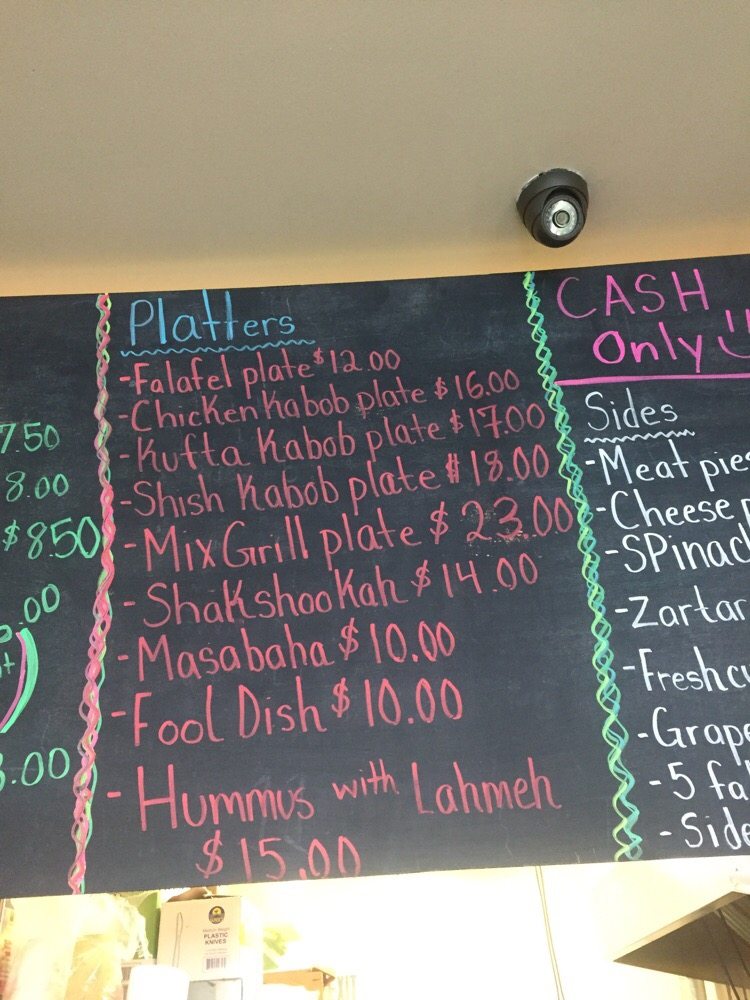 7.50
8.00
$8.50
.00
.00
Platters
-Falafel plate $12.00
-Chicken Kabob plate $16.00
-Kufta Kabob plate $17.00
-Shish Kabob plate $18.00
-Mix Grill plate $23.00
-Shakshookah $14.00
-Masabaha $10.00
-Fool Dish $10.00
-Hummus with Lahmeh
$15.00
CASH
only
Sides
-Meat pies
-Cheese
-SPinac
-Zartar
-Freshcu
-Grape
-5 fa
-Side
PLASTIC
KNIVES